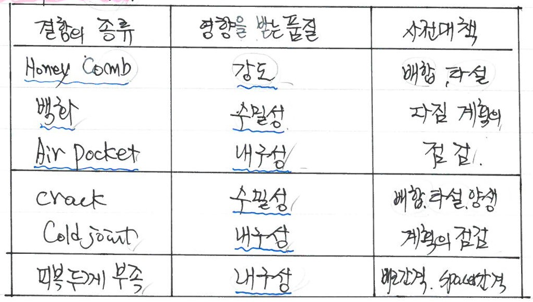 결함의 종류 영향을 받는 품질 사전대책
Honey Comb 강도 배합, 타설
백화 수밀성 다짐 계획의
Air pocket 내구성 점검.
crack 수밀성 배합.타설.양생
Cold joint 내구성 계획의 점검
피복두께 부족 내구성 배근간격. spacer간격